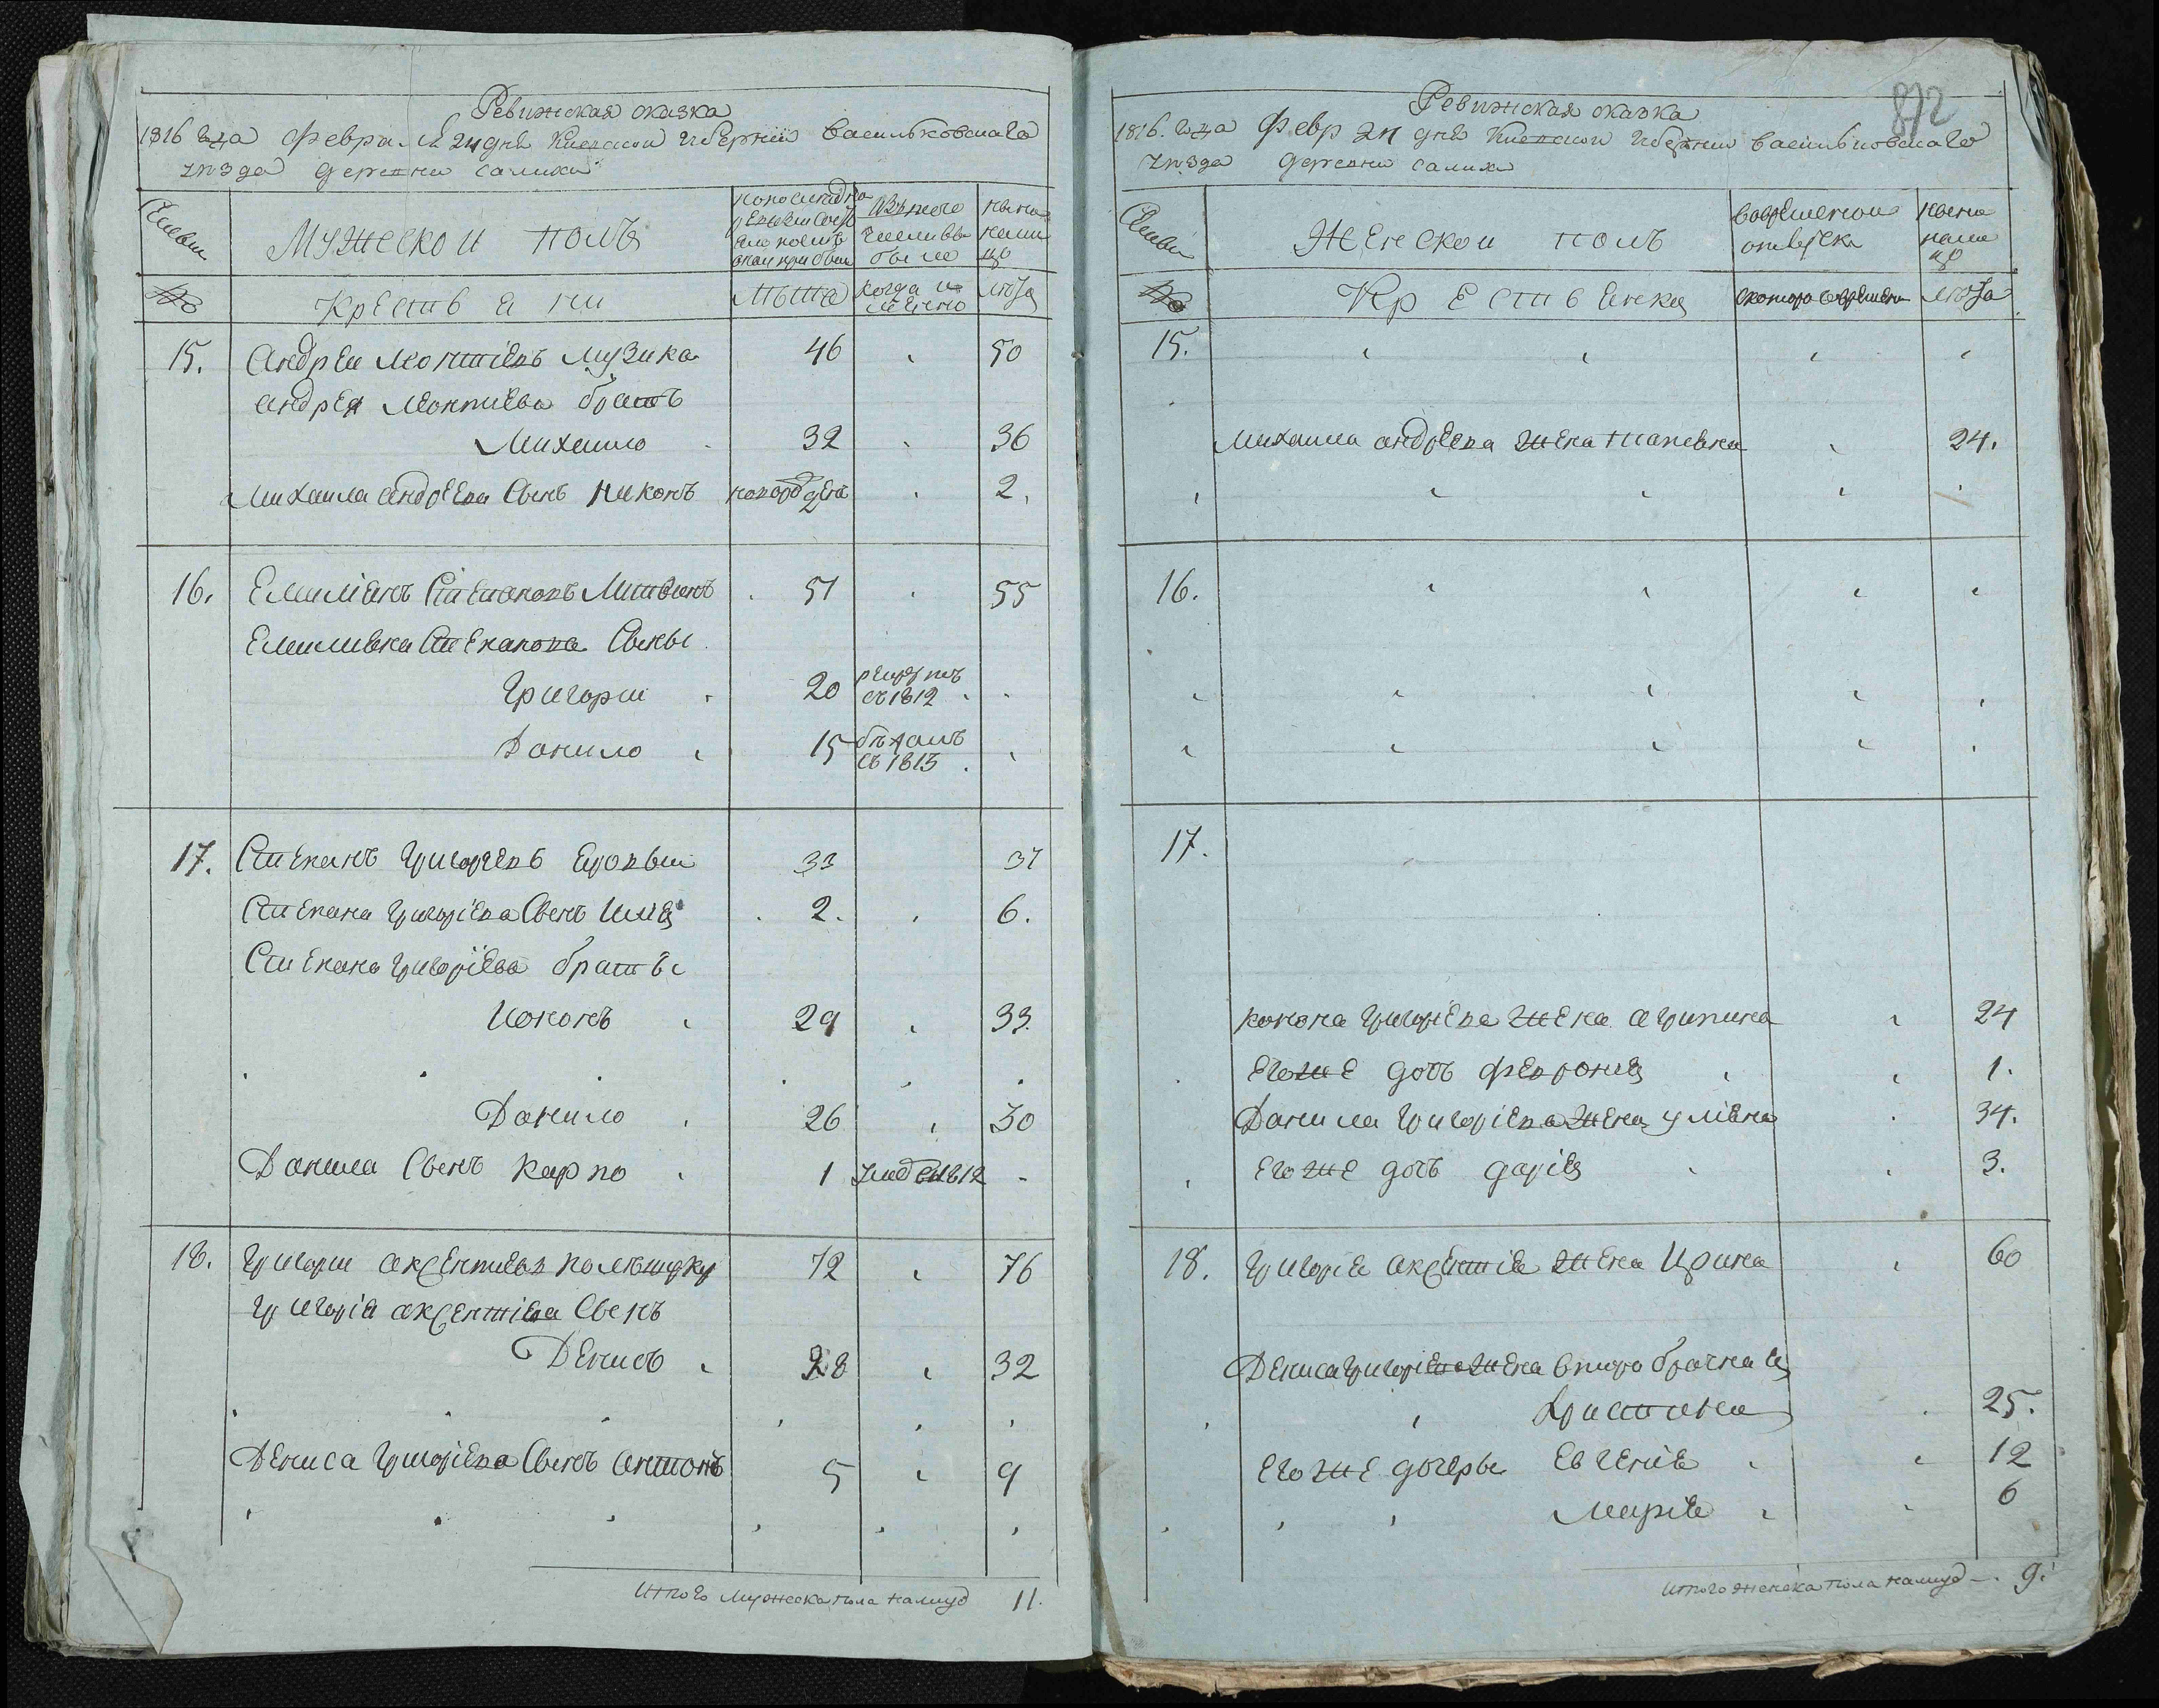 Ревижская сказка
1816 года Февраля 24 дня Киевской Губернии Васильковскаго
уѣзда деревни Салихи
Семьи
Мужеской полъ
по последней ревизии состояло и после оной прибыло
Изъ того числа выбыло
ныне налицо
№
Крестьяни
Лѣта
когда именно
Лѣта
15. Андрей Леонтіевъ Музика 46 50
Андрея Леонтиева братъ
Михаило 32 36
Михаила Андреева Сынъ Никонъ новорожденъ 2.
16. Емиліянъ Степановъ Литвинъ 51 55
Емилияна Степанова Сыны
Григорий 20 рекрутъ
въ 1812
Данило 15 бѣжалъ
въ 1815
17. Степанъ Григориевъ 33 37
Степана Григоріева Сынъ Илія 2. 6.
Степана Григоріева братья
Кононъ 29 33.
Данило 26 30
Данила Сынъ Карпо 1 умре въ 1812
18. Григорий Аксентиевъ 72 76
Григорія Аксентіева Сынъ
Денисъ 28 32
Дениса Григоріева Сынъ Антонъ 5 9
Итого Мужеска пола налицо 11.
872
Ревижская сказка
1816. года Февр 24 дня Киевской Губернии Васильковскаго
уѣзда деревни Салихи
Семьи
Женской полъ
Во временной отлучке
ныне налицо
№
Крестьянска
Скотораго времени
Лѣта
15.
Михаила Андреева жена 24.
16.
17.
Конона Григориева жена Агрипина 24
Егоже дочь Феврония 1.
Данила Григоріева жена Уліяна 34.
Егоже дочь Дарія 3.
18. Григорія Аксентія жена Ирина 60
Дениса Григоріева жена второбрачная
Христина 25.
Егоже дочеры Евгенія 12
Марія 6
Итого женска пола налицо 9.